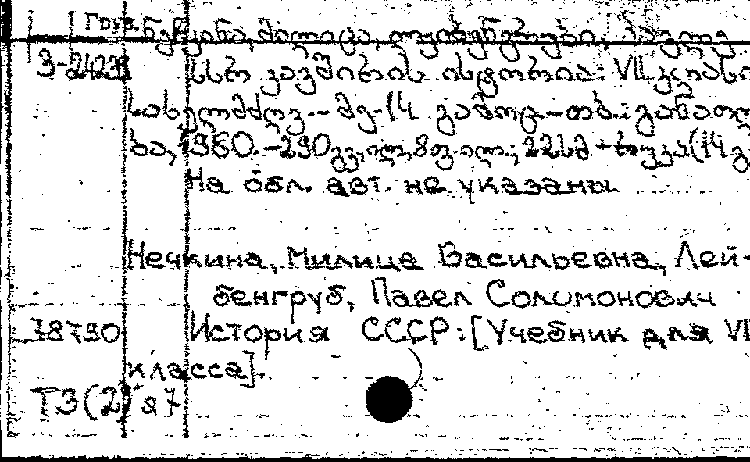 Груз.
ნეჩკინა, მილიცა, ლეიბენგრუბი, პაველ
3-2423 სსრ კავშირის ისტორია: VII კლასი
სახელმძღვ.-- მე-14 გამოც.-თბ.: განათლ
ბა, 1980.-290გვ.,ილ,8ფ.ილ.; 22სმ
На обл. авт. не указаны.
Нечкина, Милица Васильевна, Лей-
бенгруб, Павел Соломонович
78790 История СССР: [Учебник для VII
класса].
Т3(2)я7